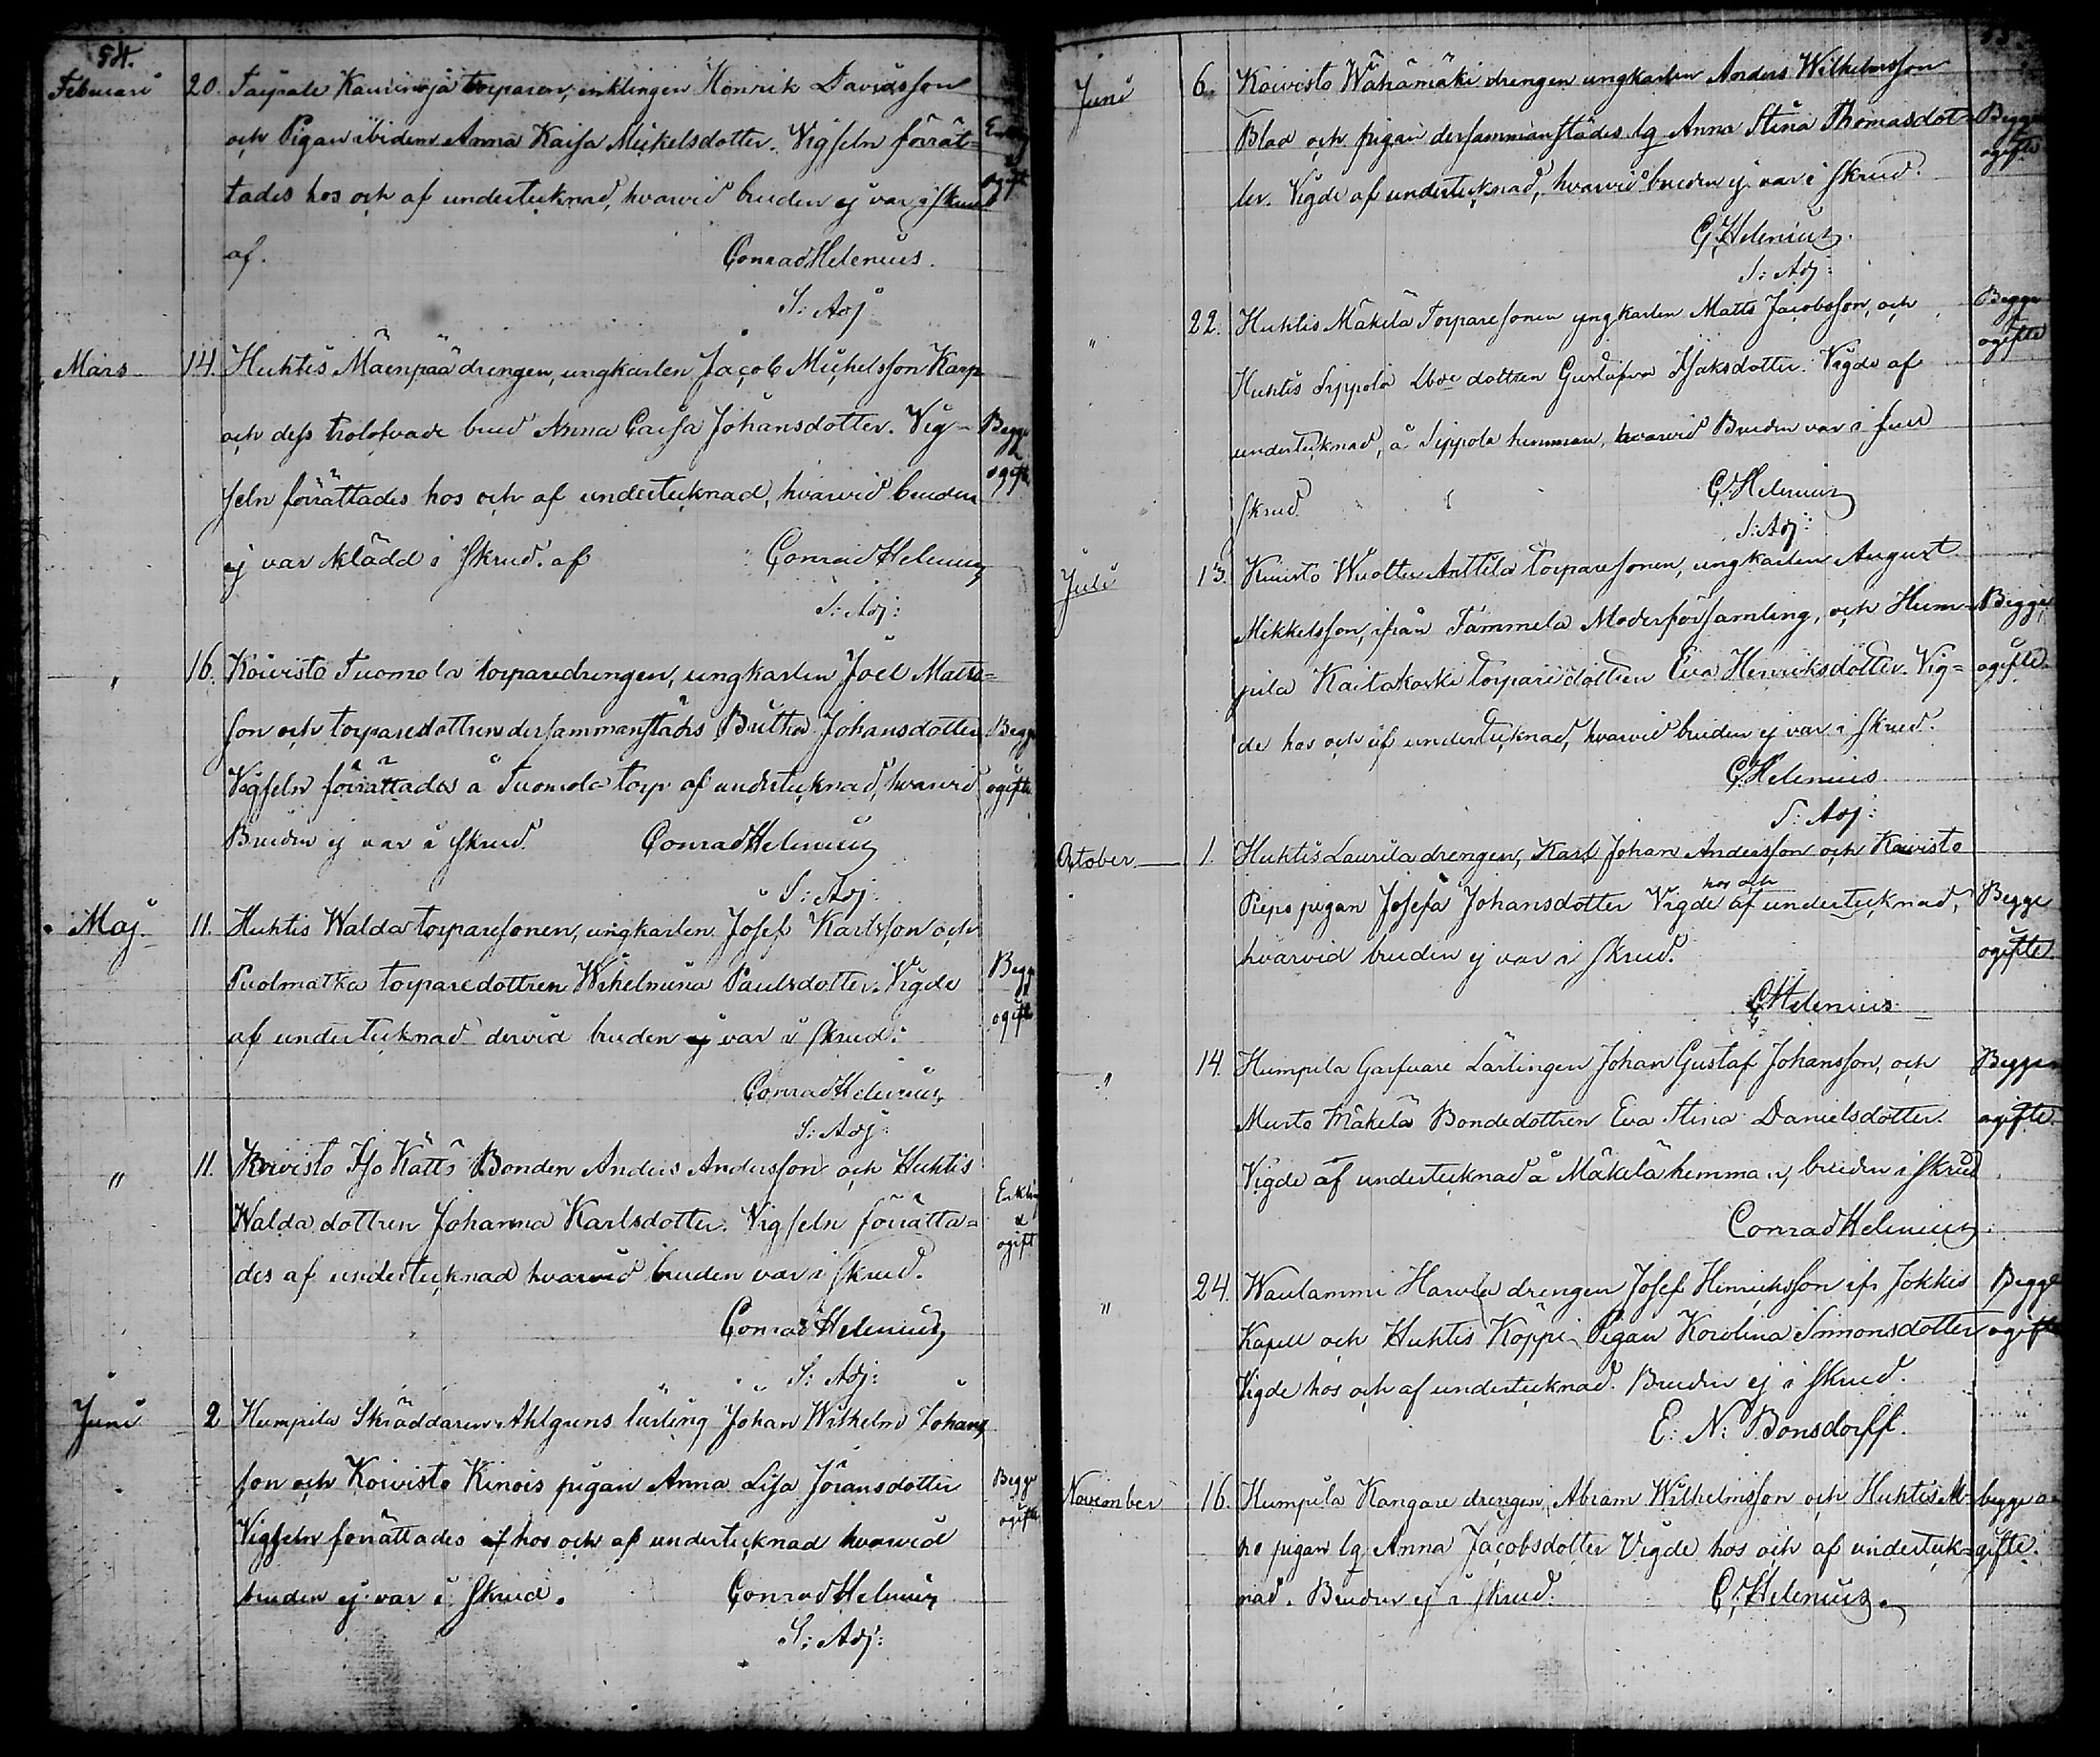 54.
Februari 20. Taipale torparen, enklingen Henrik Davidsson
och Pigan ibidem Anna Kaisa Mickelsdotter. Vigseln förrät=
tades hos och af undertecknad, hvarvid bruden ej var i skrud
Enkling & ogift
af. Conrad Helenius.
S: Adj
Mars 14. Huhtis Mäenpää drengen, ungkarlen Jacob Michelsson Karp
och dess trolofvade brud Anna Caisa Johansdotter. Vig-
seln förrättades hos och af undertecknad, hvarvid bruden
Begge ogifte
ej var klädd i skrud. af Conrad Helenius
S: Adj:
" 16. Koivisto Tuomola torparedrengen, ungkarlen Joel Matts=
son och torparedottren dersammanstädes Johansdotter
Vigseln förrättades å Tuomola torp af undertecknad, hvarvid
Begge ogifte
Bruden ej var i skrud. Conrad Helenius
S: Adj:
Maj 11. Huhtis Walda torparesonen, ungkarlen Josef Karlsson och
Puolmatka torparedottren Wilhelmina Paulsdotter. Vigde
af undertecknad dervid bruden ej var i skrud.
Begge ogifte
Conrad Helenius
S: Adj:
" 11. Koivisto Iso Kätts Bonden Anders Andersson och Huhtis
Walda dottren Johanna Karlsdotter. Vigseln förrätta=
des af undertecknad hvarvid bruden var i skrud.
Enkling & ogift
Conrad Helenius
S: Adj:
Juni 2 Humpila Skräddaren Ahlgrens lärling Johan Wilhelm Johans
son och Koivisto Kinois pigan Anna Lisa Göransdotter
Vigseln forrättades af hos och af undertecknad hvarvid
Begge ogifte
bruden ej var i skrud. Conrad Helenius
S: Adj:
Juni 6. Koivisto Wähämäki drengen ungkarlen Anders Wilhelmsson
Blad och pigan dersammanstädes lg Anna Stina Thomasdot=
ter. Vigde af undertecknad, hvarvid bruden ej var i skrud.
Begge ogifte
C. Helenius.
S: Adj:
" 22. Huhtis Mäkilä Torparesonen ungkarlen Matts Jacobsson, och
Huhtis Sippola dottren Gustafva Isaksdotter. Vigde af
undertecknad, å Sippola hemman, hvarvid Bruden var i full
skrud.
Begge ogifte
C. Helenius
S: Adj:
Juli 13. Anttila torparesonen, ungkarlen August
Mikkelsson, ifrån Tammela Moderförsamling, och Hum=
pila Kaitakoski torparedottren Eva Henriksdotter. Vig=
de hos och af undertecknad, hvarvid bruden ej var i skrud.
Begge ogifte
C. Helenius
S: Adj:
October 1. Huhtis Laurila drengen, Karl Johan Andersson och Koivisto
pigan Josefa Johansdotter Vigde hos och af undertecknad,
hvarvid bruden ej var i skrud.
Begge ogifte
C Helenius
" 14. Humpila Garfvare Lärlingen Johan Gustaf Johansson, och
Murto Mäkelä Bondedottren Eva Stina Danielsdotter.
Vigde af undertecknad å Mäkelä hemman, bruden i skrud
Begge ogifte
Conrad Helenius
" 24. Waulammi Harvia drengen Josef Hinrichsson ifr Jokkis
Kapell och Huhtis Köppi Pigan Karolina Simonsdotter
Vigde hos och af undertecknad. Bruden ej i skrud.
Begge ogifte
E: N: Bonsdorff.
November 16. Humpila Kangare drengen, Abram Wilhelmsson och Huhtis
pigan lg Anna Jacobsdotter Vigde hos och af underteck=
nad. Bruden ej i skrud. C. Helenius.
begge o=
gifte.